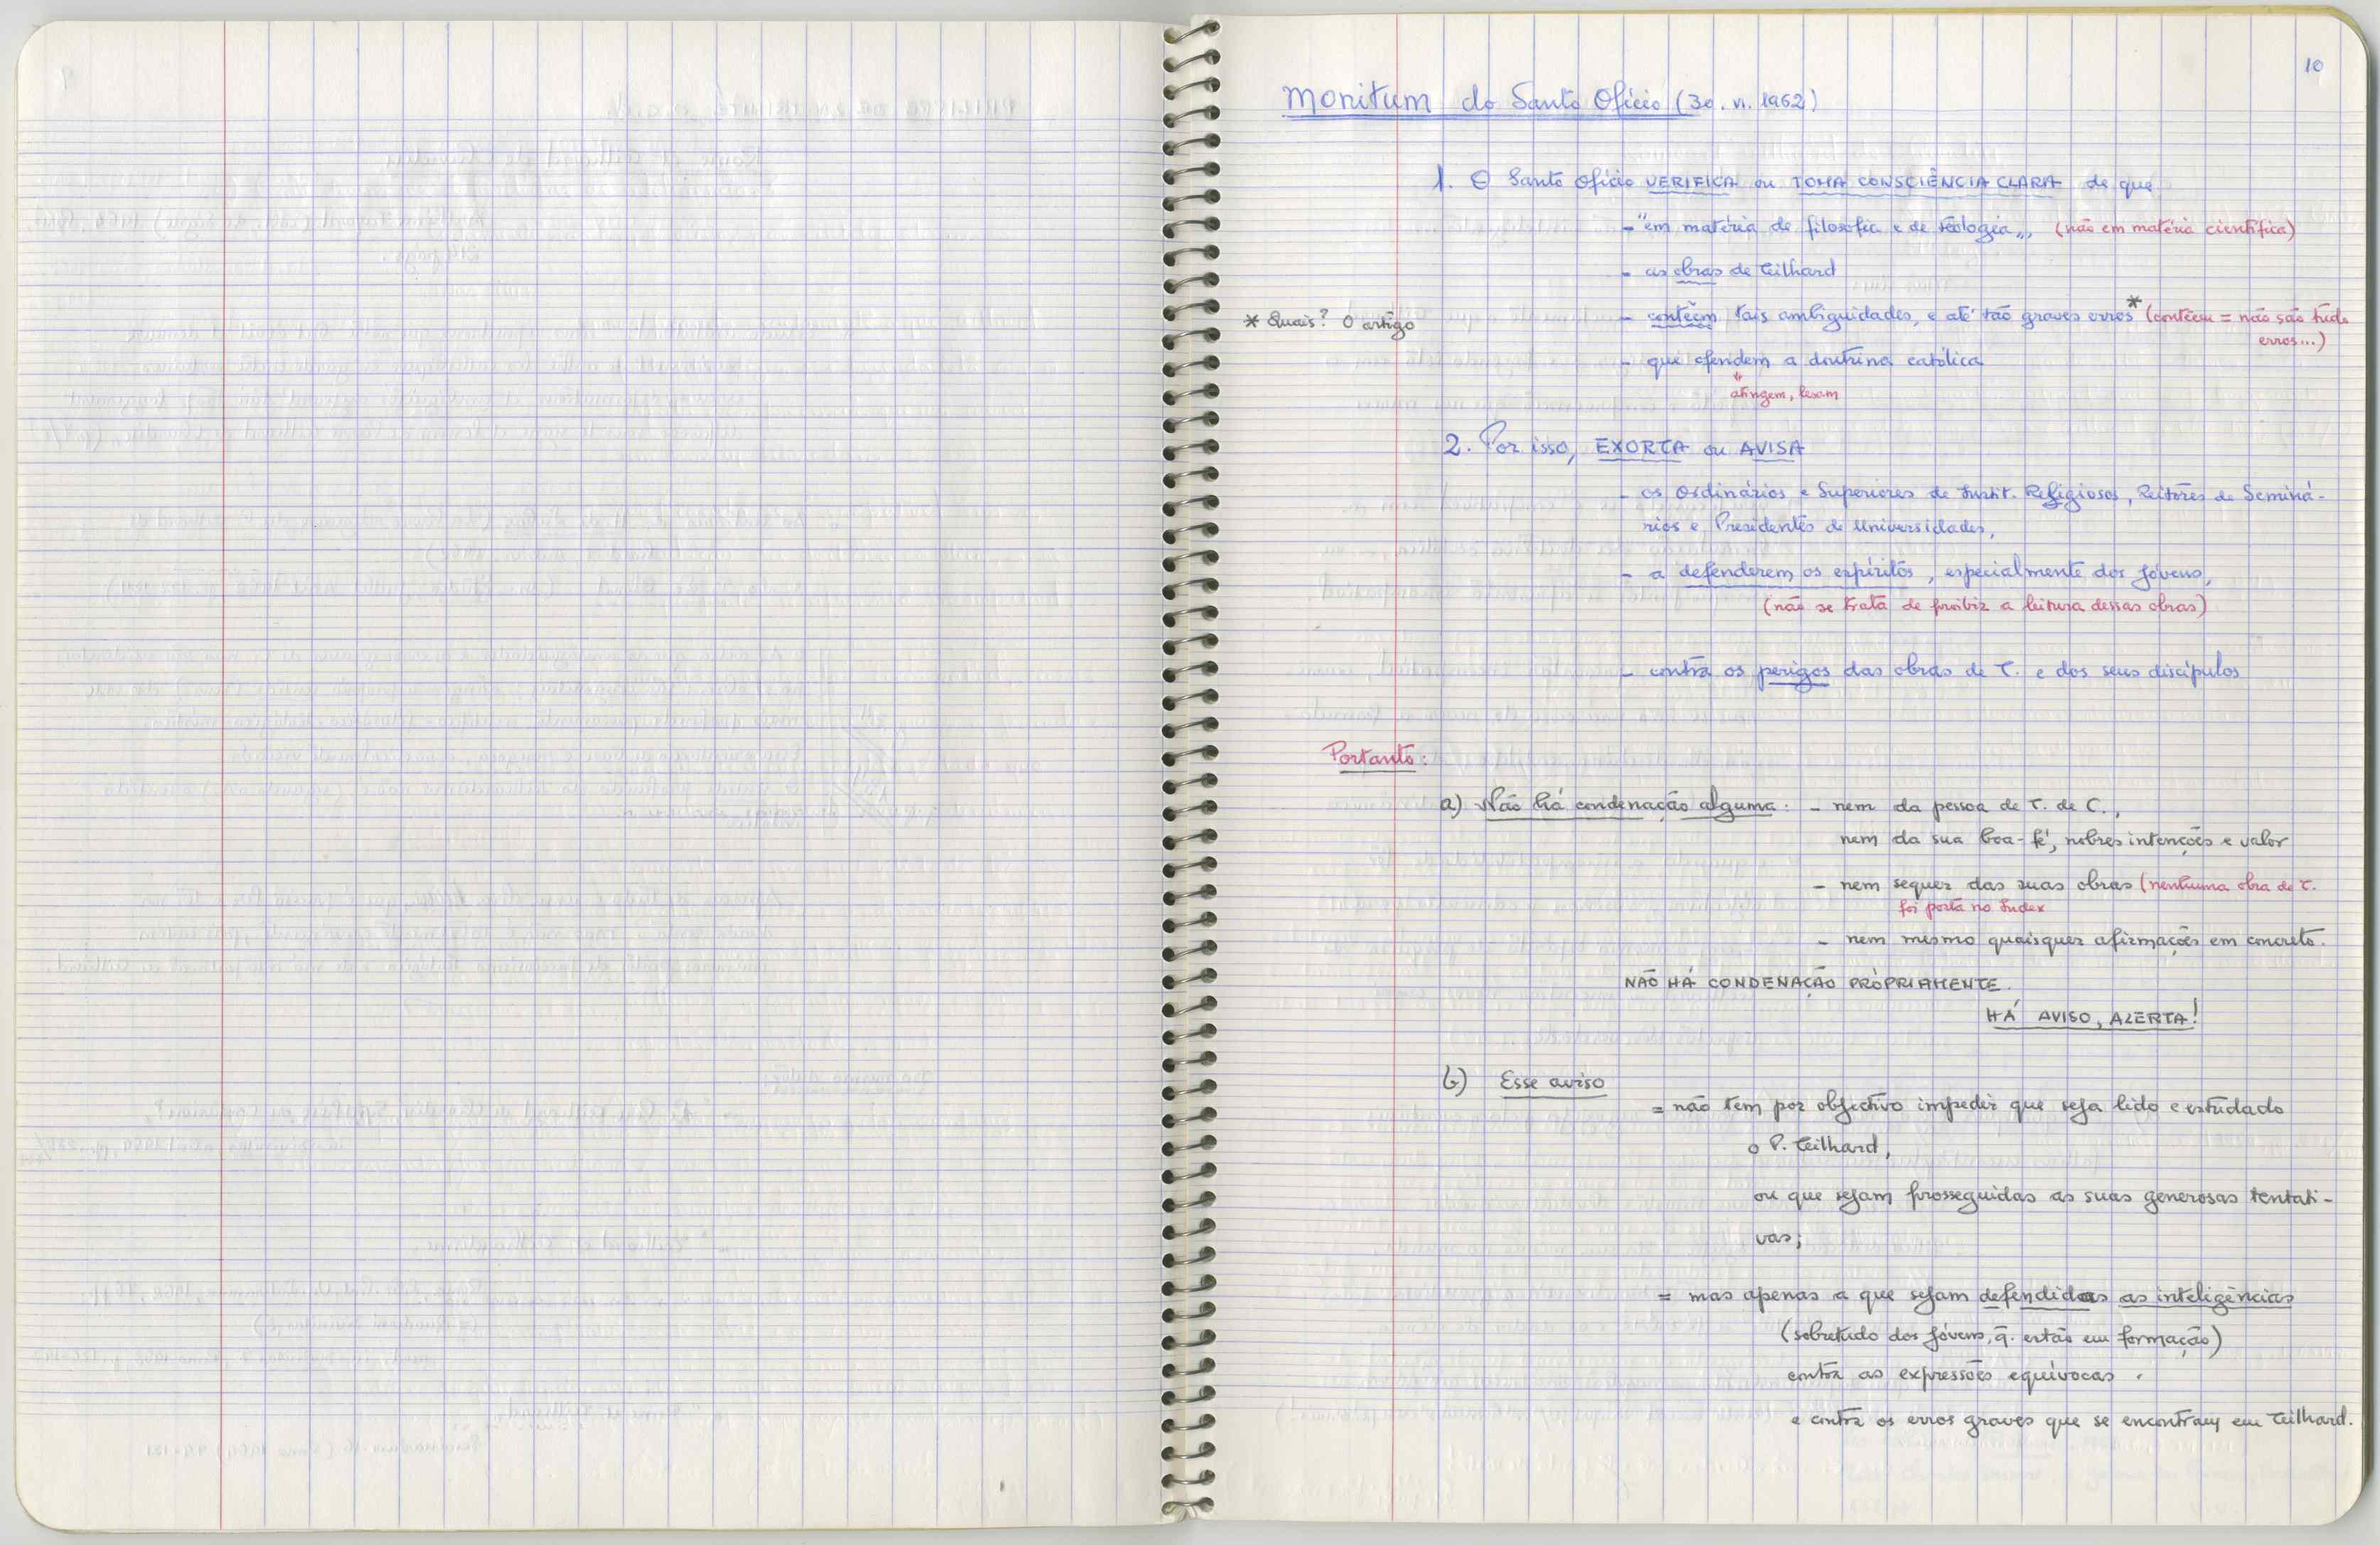 10
Monitum do Santo Ofício (30. VI. 1962)
1. O Santo Ofício VERIFICA ou TOMA CONSCIÊNCIA CLARA de que
- "em matéria de filosofia e de teologia", (não em matéria científica)
- as obras de Teilhard
* Quais? O artigo
- contêem tais ambiguidades, e até tão graves erros* (contêem = não são tudo
erros...)
- que ofendem a doutrina católica
atingem, lesam
2. Por isso, EXORTA ou AVISA
- os Ordinários e Superiores de Instit. Religiosos, Reitores de Seminá-
rios e Presidentes de Universidades,
- a defenderem os espíritos, especialmente dos jóvens,
(não se trata de proibir a leitura dessas obras)
- contra os perigos das obras de T. e dos seus discípulos
Portanto:
a) Não há condenação alguma: - nem da pessoa de T. de C.,
nem da sua boa-fé, nobres intenções e valor
- nem sequer das suas obras (nenhuma obra de T.
foi posta no Index
- nem mesmo quaisquer afirmações em concreto.
NÃO HÁ CONDENAÇÃO PRÒPRIAMENTE.
HÁ AVISO, ALERTA!
b) Esse aviso
= não tem por objectivo impedir que seja lido e estudado
o P. Teilhard,
ou que sejam prosseguidas as suas generosas tentati-
vas;
= mas apenas a que sejam defendidas as inteligências
(sobretudo dos jóvens, q. estão em formação)
contra as expressões equívocas.
e contra os erros graves que se encontram em Teilhard.